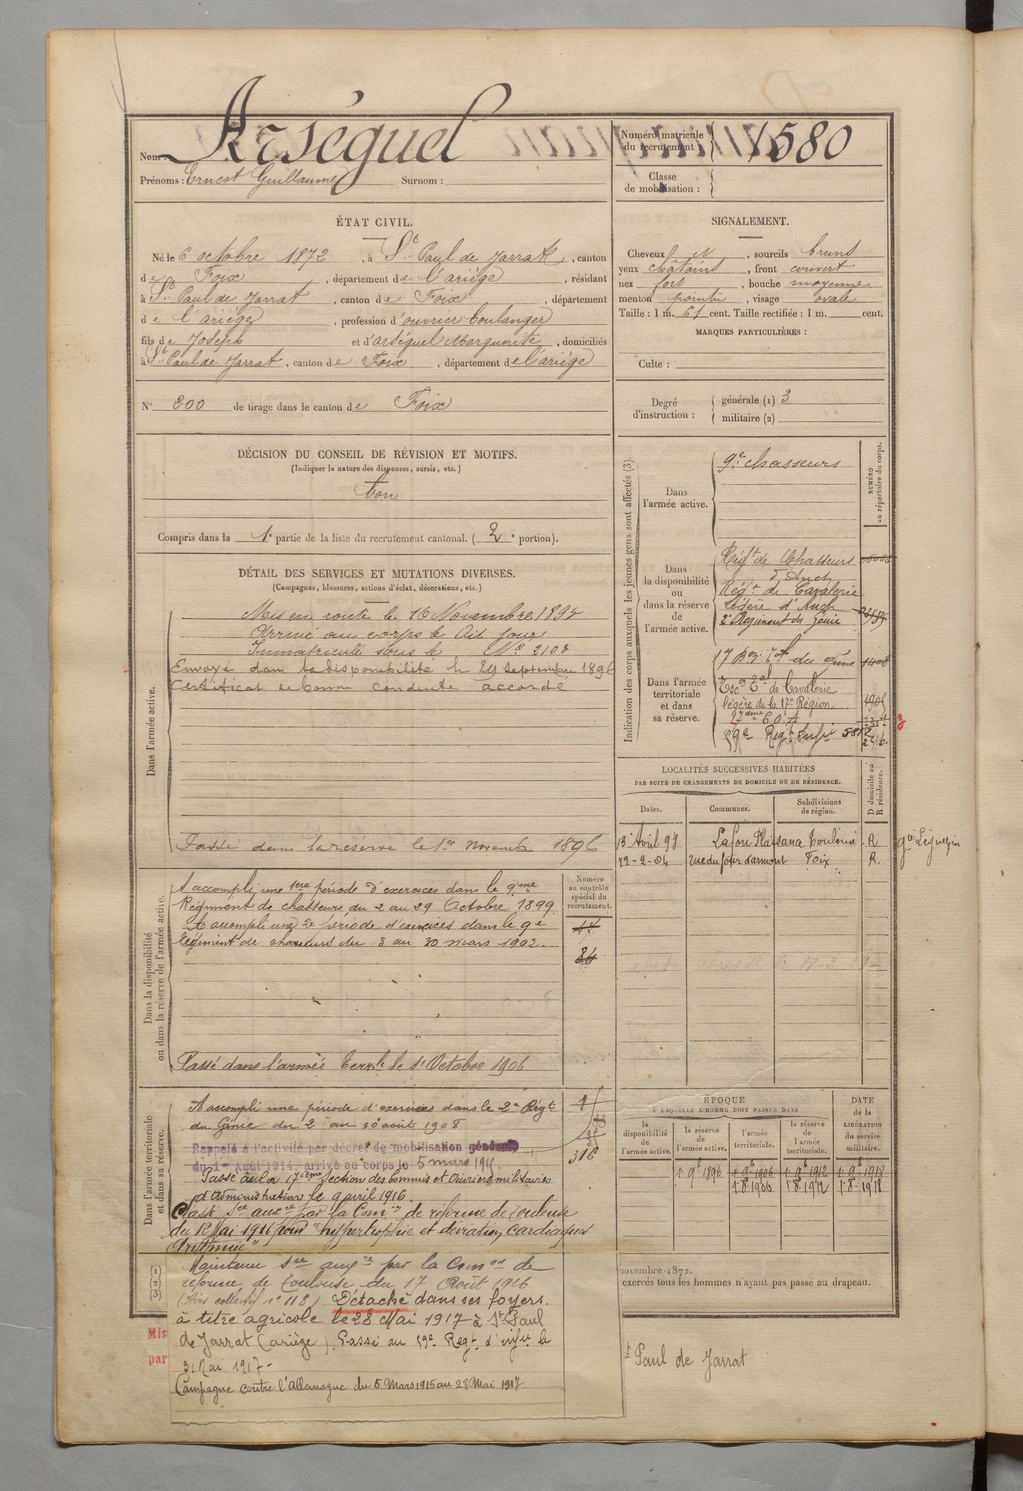 Nom : Arséguel
Prénoms : Ernest Guillaume Surnom :
Numéro matricule du recrutement 1580
Classe de mobilisation :
ÉTAT CIVIL.
Né le 6 octobre 1872, à St Paul de Jarrat, canton
de Foix, département de l'ariège, résidant
à St Paul de Jarrat, canton de Foix, département
de l'ariège, profession d'ouvrier boulanger
fils de Joseph et d'arséguel Marguerite, domiciliés
à St Paul de Jarrat, canton de Foix, département de l'ariège
N° 200 de tirage dans le canton de Foix
SIGNALEMENT.
Cheveux et N, sourcils bruns
yeux châtains, front couvert
nez fort, bouche moyenne
menton pointu, visage ovale
Taille : 1 m. 61 cent. Taille rectifiée : 1 m. cent.
MARQUES PARTICULIÈRES :
Culte :
Degré d'instruction : générale (1) 3
militaire (2)
DÉCISION DU CONSEIL DE RÉVISION ET MOTIFS.
(Indiquer la nature des dispenses, sursis, etc.)
bon
Compris dans la 1e partie de la liste du recrutement cantonal. ( 2e portion).
DÉTAIL DES SERVICES ET MUTATIONS DIVERSES.
(Campagnes, blessures, actions d'éclat, décorations, etc.)
Dans l'armée active.
Mis en route le 16 Novembre 1893
Arrivé au corps le Dit Jour
Immatriculé sous le N° 2108
Envoyé dans la disponibilité le 29 septembre 1896
Certificat de bonne conduite accordé
Passé dans la réserve le 1er Novembre 1896
Dans la disponibilité ou dans la réserve de l'armée active.
A accompli une 1ere période d'exercices dans le 9me
Régiment de chasseurs du 2 au 29 Octobre 1899
A accompli une 2e période d'exercices dans le 9e
régiment de chasseurs du 3 au 30 mars 1902.
Passé dans l'armée terrle le 1r Octobre 1906
Numéro au contrôle spécial du recrutement.
44
84
Dans l'armée territoriale et dans sa réserve.
A accompli une période d'exercices dans le 2e Régt
du Génie du 2 au 10 août 1908
Rappelé à l'activité par décret de mobilisation générale
du 1er Août 1914, arrivé au corps le 5 mars 1915
Passé à la 17ème Section des Commis et Ouvriers militaires
d'Administration le 9 avril 1916
Classé Sce auxre par la Comon de réforme de Toulouse
du 12 Mai 1916 pour "hypertrophie et déviation cardiaques
Arithmie"
310
(1)
(2)
(3)
Maintenu sce auxre par la Comon de
réforme de Toulouse du 17 Août 1916
(Avis collectif n° 118) Détaché dans ses foyers
à titre agricole le 28 Mai 1917 à St Paul
de Jarrat (ariège) Passé au 59e Régt d'infie le
31 Mai 1917-
Campagne contre l'Allemagne du 5 Mars 1915 au 28 Mai 1917
Mis
par
Indication des corps auxquels les jeunes gens sont affectés (3).
NUMÉRO au répertoire du corps.
Dans l'armée active.
9e chasseurs
Dans la disponibilité ou dans la réserve de l'armée active.
Régt de Chasseurs
d'Auch
Régt de Cavalerie
Légère d'Auch
2e Régiment du Génie
Dans l'armée territoriale et dans sa réserve.
Escon Tal de Cavalerie
légère de la 17e Région
17ème C.O.A
59e Régt Infie
LOCALITÉS SUCCESSIVES HABITÉES
PAR SUITE DE CHANGEMENTS DE DOMICILE OU DE RÉSIDENCE.
Dates. Communes. Subdivisions de région. D domicile ou R résidence.
13 Avril 98 Toulouse R
22-2-04 Foix R.
ÉPOQUE
À LAQUELLE L'HOMME DOIT PASSER DANS
la disponibilité de l'armée active. la réserve de l'armée active. l'armée territoriale. la réserve de l'armée territoriale.
DATE de la LIBÉRATION du service militaire.
1 9b 1896 1 9b 1906 1 9b 1912 1 9b 1918
1 8b 1906 1 8b 1912 1-8-1918
novembre 1872.
exercés tous les hommes n'ayant pas passé au drapeau.
St Paul de Jarrat